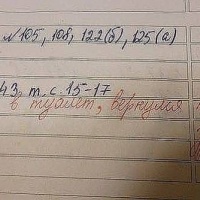 №105, 108, 122(б), 125(а)
43, т. с. 15-17
в туалет, вернулся